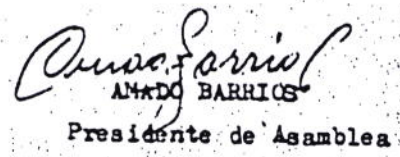 Amado Barrios
AMADO BARRIOS
Presidente de Asamblea